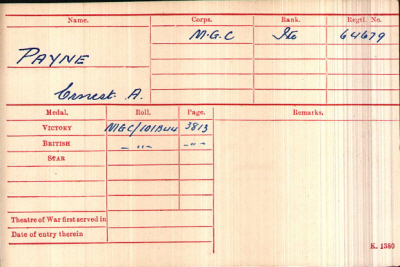 Name. Corps. Rank. Regtl. No.
M.G.C Pte 64679
PAYNE
Ernest A.
Medal. Roll. Page. Remarks.
VICTORY MGC/101B44 3813
BRITISH – „ – – „ –
STAR
Theatre of War first served in
Date of entry therein
K. 1380